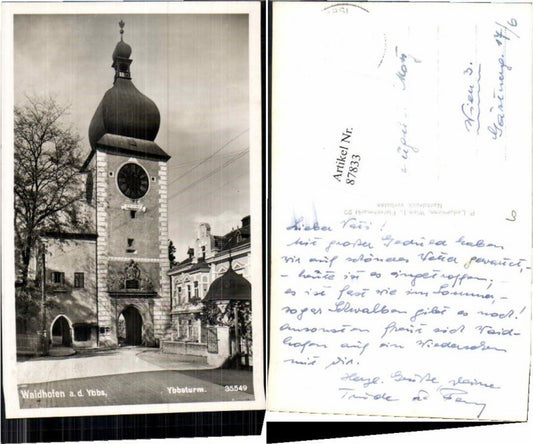 Waidhofen a. d. Ybbs,
Ybbsturm.
35549
Artikel Nr.
87833
Wien 3.
17/6
6
Lieber Peti!
Mit großer Geduld haben
wir auf schönes Wetter gewartet,
– heute ist es eingetroffen; –
es ist fast wie im Sommer, –
sogar Schwalben gibt es noch!
Ansonsten freut sich Waid-
hofen auf ein Wiedersehen
mit Dir.
Herzl. Grüße
Trude